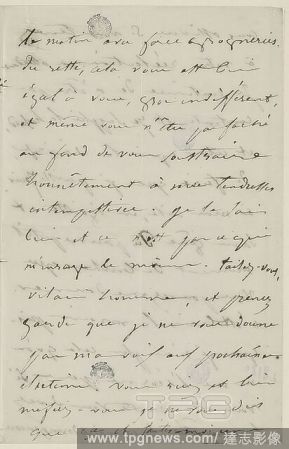 le matin avec force grogneries
du reste, cela vous est bien
égal à vous, gros indifférent,
et même vous n'êtes pas fâché
au fond de vous soustraire
honnêtement à mes tendresses
intempestives. Je le sais
bien et ce n'est pas ce qui
m'enrage le moins. Taisez-vous,
vilain homme, et prenez
garde que je ne vous donne
pas ma voix aux prochaines
élections. vous riez et bien
méfiez-vous je ne vous dis
que
TPG
www.tpgnews.com / 達志影像